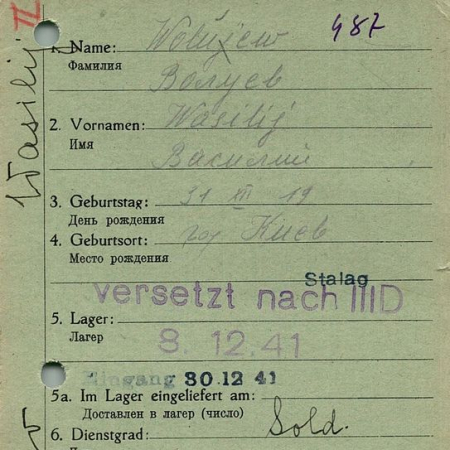 II
487
Wasilij
1. Name: Wolujew
Фамилия Волуев
2. Vornamen: Wasilij
Имя Василий
3. Geburtstag: 31 XII 19
День рождения
4. Geburtsort: гор Киев
Место рождения
Stalag
versetzt nach IIID
5. Lager:
Лагер 8.12.41
Eingang 30.12 41
5a. Im Lager eingeliefert am:
Доставлен в лагер (число)
6. Dienstgrad: Sold.